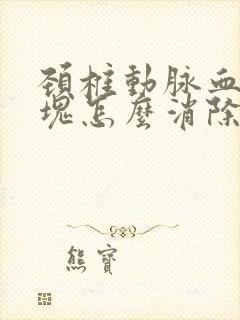 頚椎動脉血
塊怎麽消除
熊寶